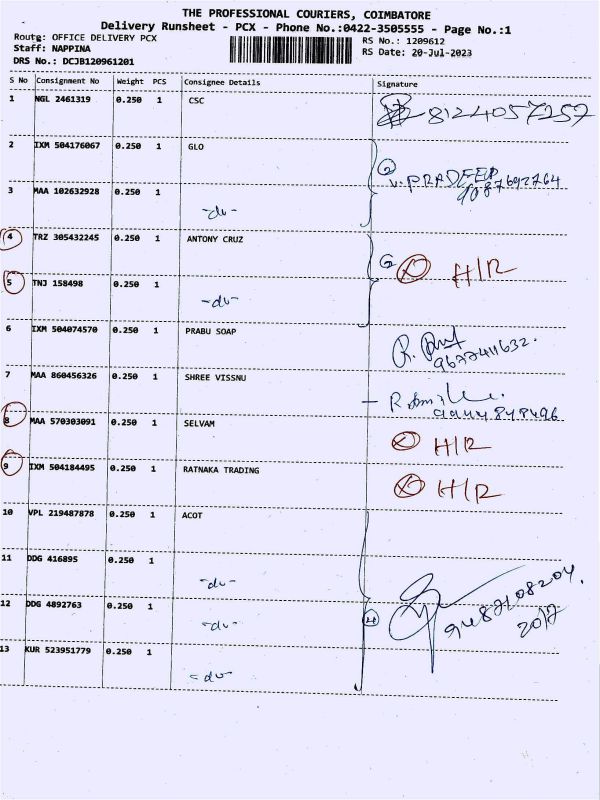 THE PROFESSIONAL COURIERS, COIMBATORE
Delivery Runsheet - PCX - Phone No.:0422-3505555 - Page No.:1
Route: OFFICE DELIVERY PCX
RS No.: 1209612
Staff: NAPPINA
RS Date: 20-Jul-2023
DRS No.: DCJB120961201
S No Consignment No Weight PCS Consignee Details Signature
1 NGL 2461319 0.250 1 CSC 8124057257
2 IXM 504176067 0.250 1 GLO
2 V. PRADEEP
9087692764
3 MAA 102632928 0.250 1
-do-
4 TRZ 305432245 0.250 1 ANTONY CRUZ
2 H/R
5 TNJ 158498 0.250 1
-do-
6 IXM 504074570 0.250 1 PRABU SOAP
9677411632.
7 MAA 860456326 0.250 1 SHREE VISSNU
9944848496
8 MAA 570303091 0.250 1 SELVAM
H/R
9 IXM 504184495 0.250 1 RATNAKA TRADING
H/R
10 VPL 219487878 0.250 1 ACOT
11 DDG 416895 0.250 1
-do-
12 DDG 4892763 0.250 1
-do-
4 9487108204.
20/7
13 KUR 523951779 0.250 1
-do-